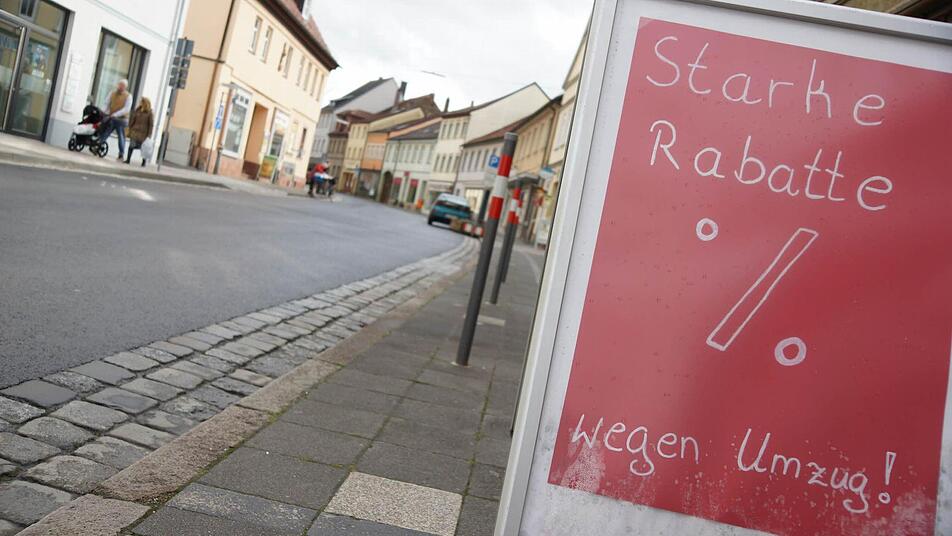 Starke
Rabatte
%
wegen Umzug!